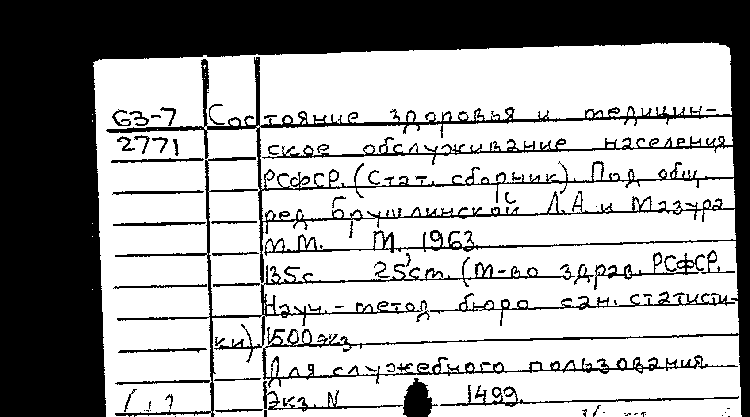 63-7 Состояние здоровья и медицин-
2771 ское обслуживание населения
РСФСР. (Стат. сборник). Под общ.
ред. Брушлинской Л.А. и Мазура
М.М. М., 1963.
135с. 25см. (М-во здрав. РСФСР.
Науч.-метод. бюро сан. статисти-
ки) 1500экз.
Для служебного пользования
Экз. N 1499.